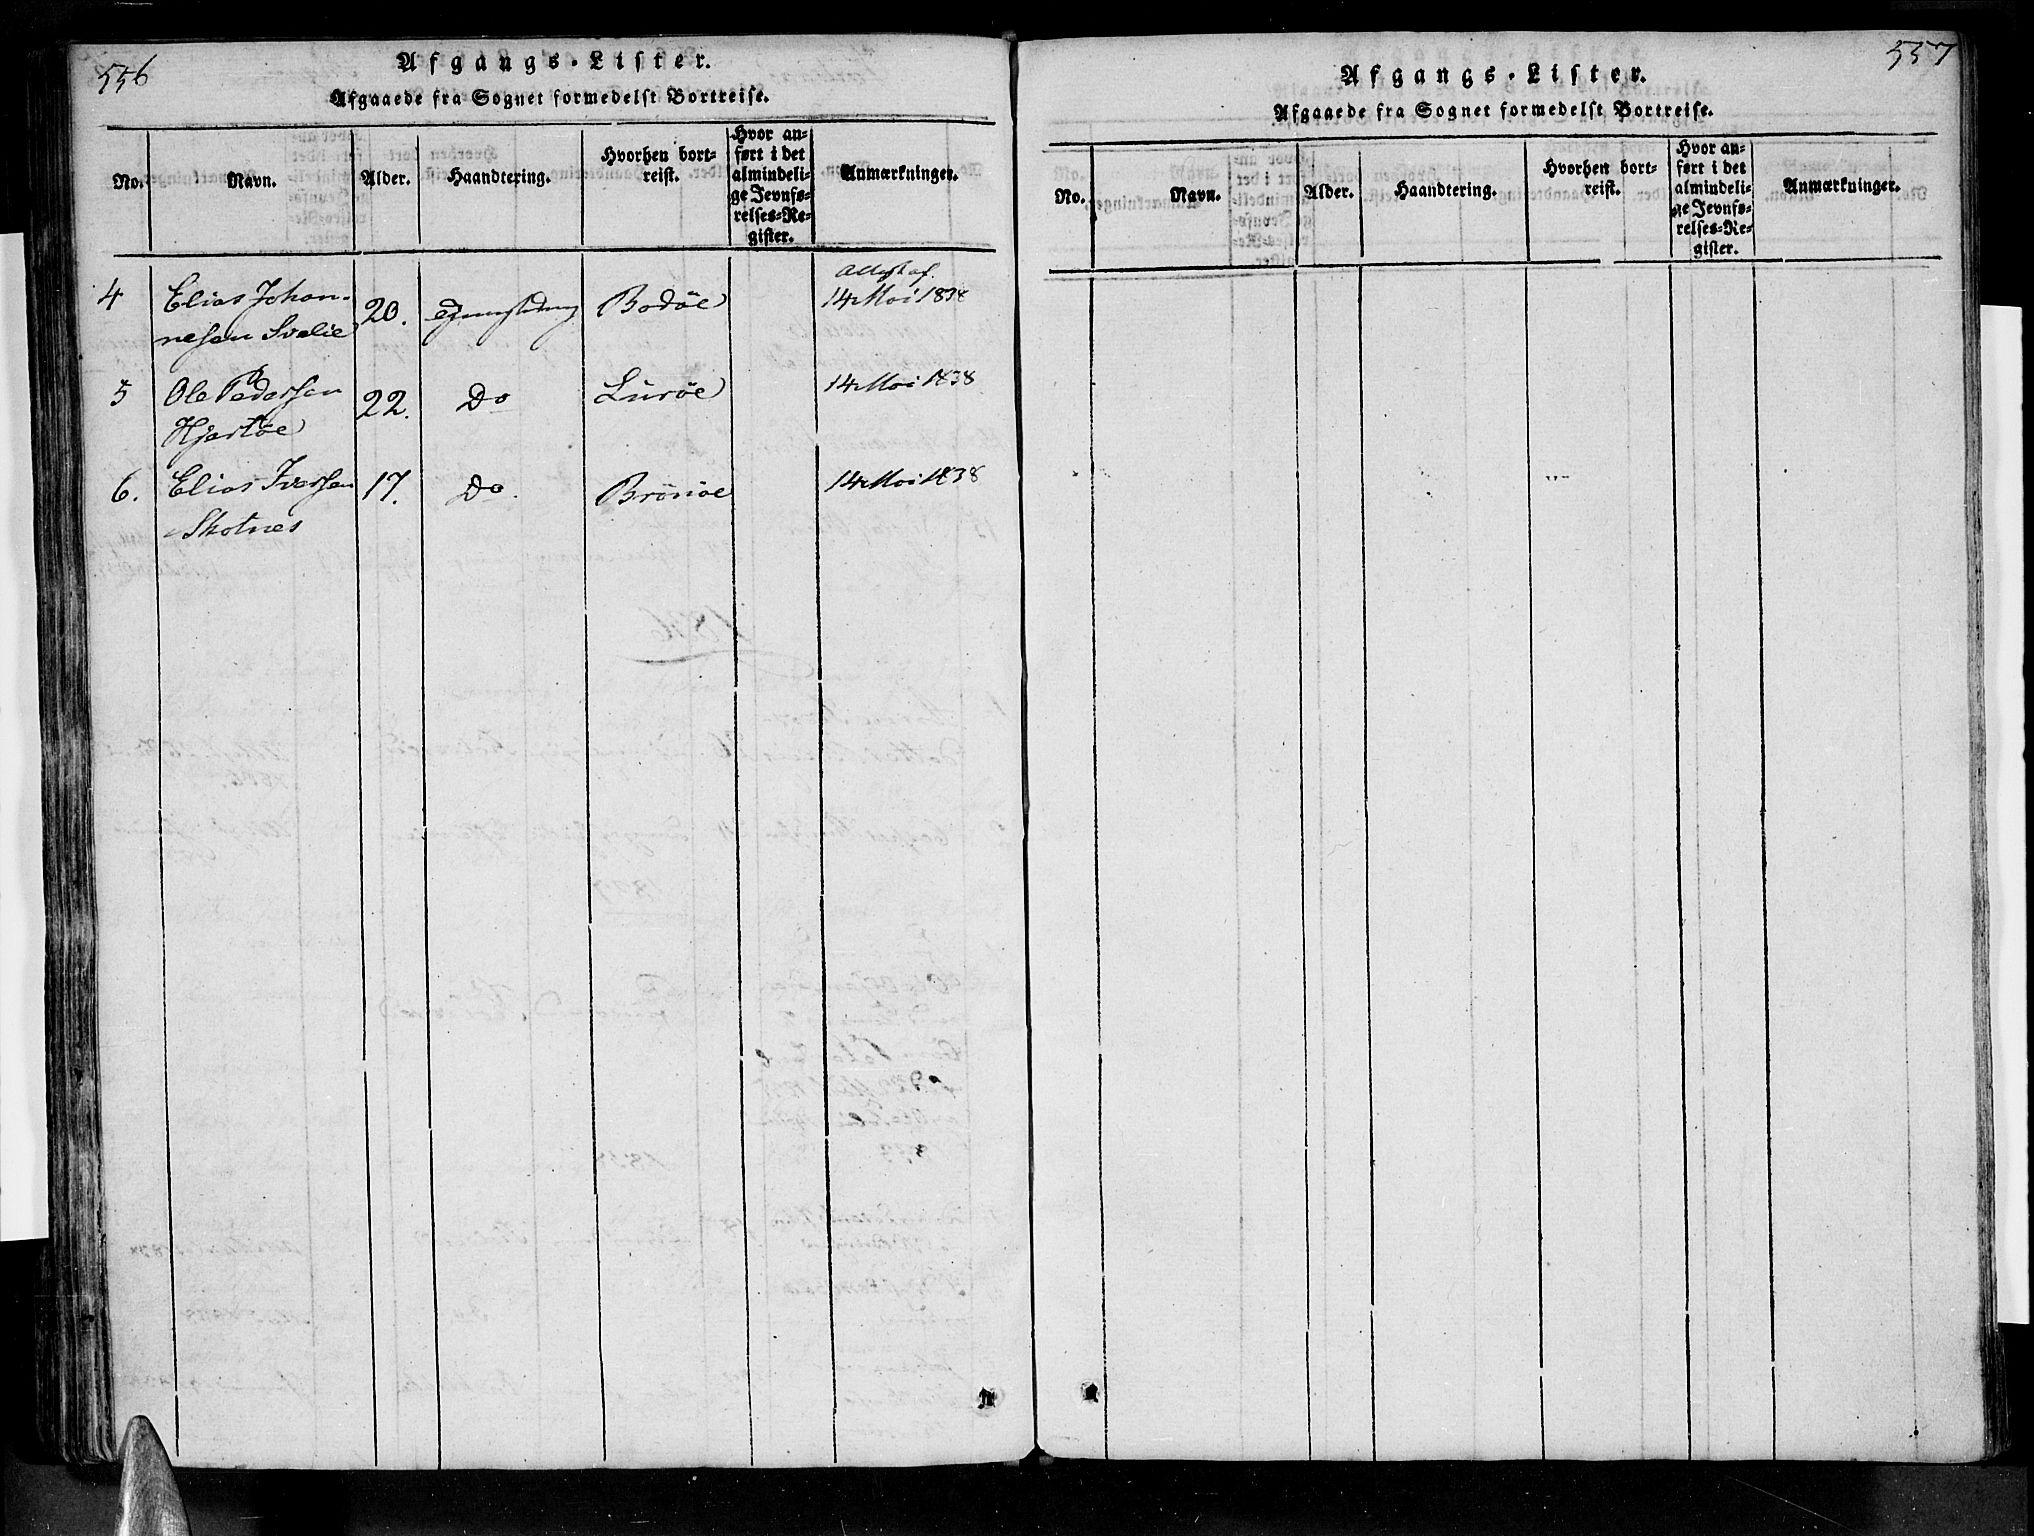 556
Afgangs-Lister.
Afgaaede fra Sognet formedelst Bortreise.
No. Navn. Alder. Haandtering. Hvorhen bort-
reist. Hvor an-
ført i det
almindeli-
ge Jevnfø-
relses-Re-
gister. Anmærkninger.
4 Elias Johan- 20. Bodöe Attest af
nesen Svalie 14 Mai 1838
5 Ole Pedersen 22. Do Luröe 14 Mai 1838
Hjartöe
6. Elias Iversen 17. Do. Brönöe 14 Mai 1838
Skotnes
557
Afgangs-Lister.
Afgaaede fra Sognet formedelst Bortreise.
No. Navn. Alder. Haandtering. Hvorhen bort-
reist. Hvor an-
ført i det
almindeli-
ge Jevnfø-
relses-Re-
gister. Anmærkninger.